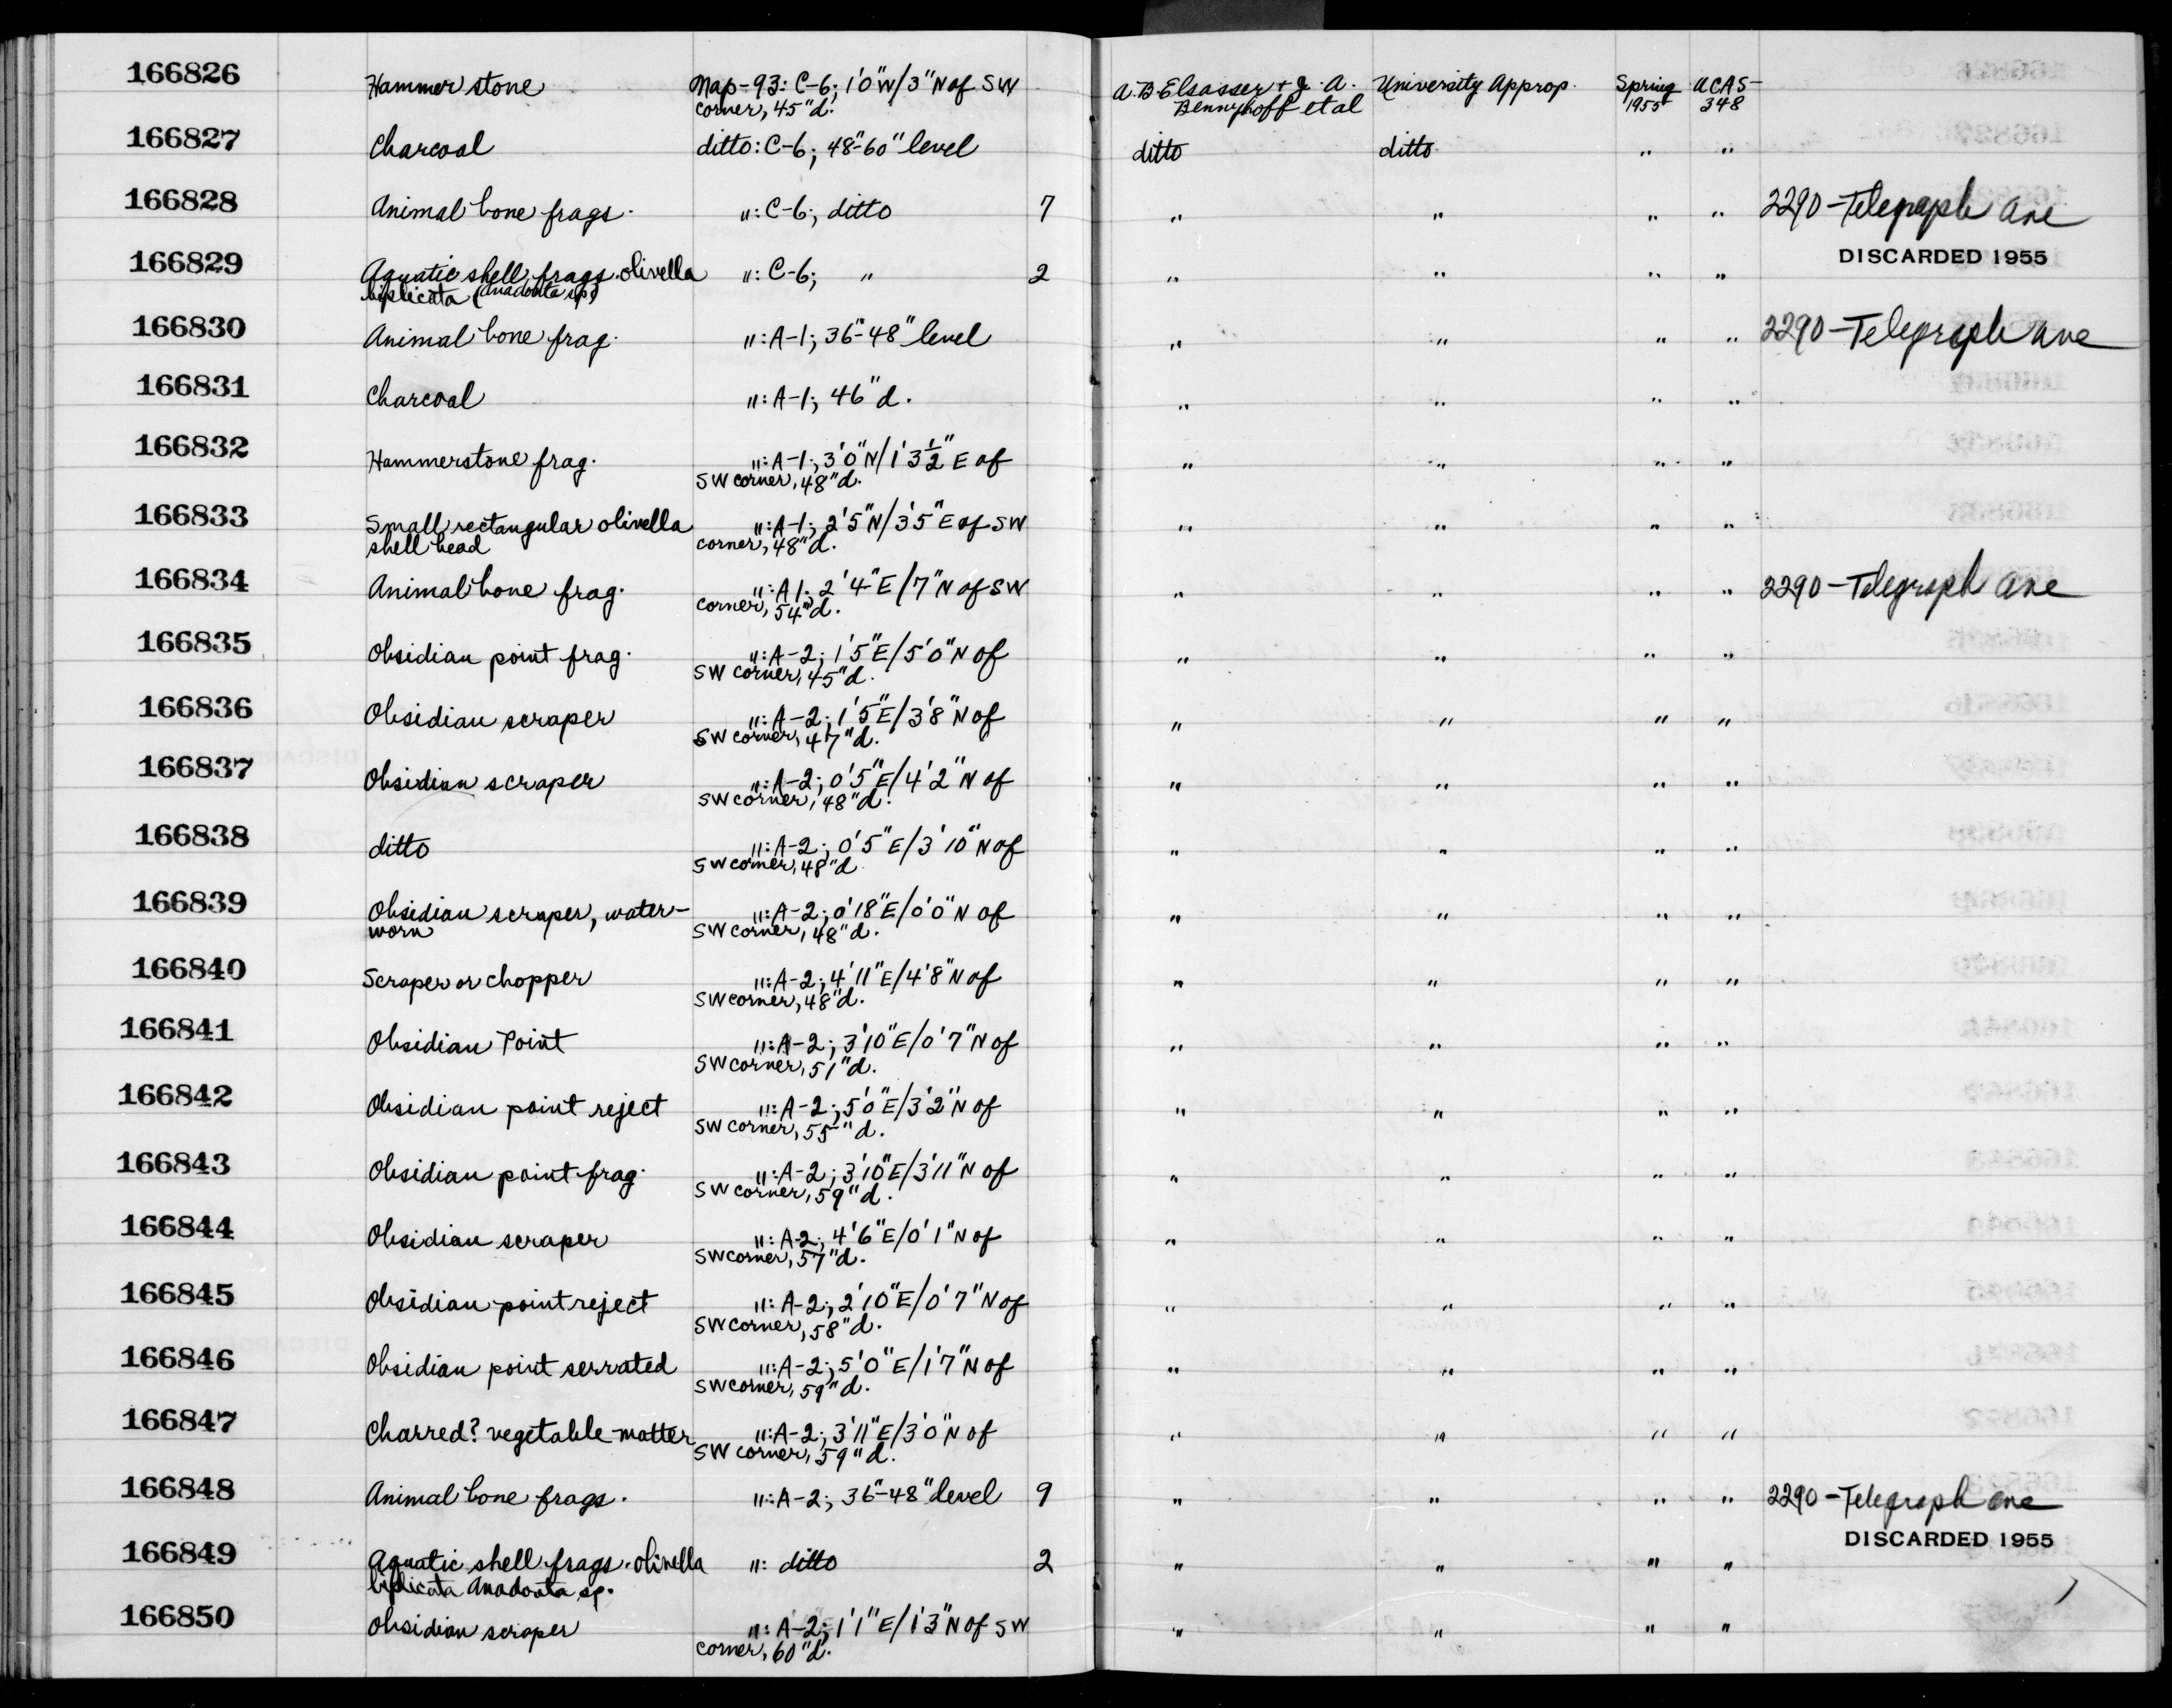 166826 Hammer stone Map-93: C-6; 1'0"W/3"N of SW A.B. Elsasser + J.A. University Approp. Spring UCAS-
corner, 45"d. Bennyhoff et al 1955 348
166827 Charcoal ditto: C-6; 48"-60" level ditto ditto " "
166828 Animal bone frags. ": C-6; ditto 7 " " " " 2290-Telegraph Ave
166829 Aquatic shell frags. olivella ": C-6; " 2 " " " " DISCARDED 1955
biplicata (Anadonta sp)
166830 Animal bone frag. ": A-1; 36"-48" level " " " " 2290-Telegraph Ave
166831 Charcoal ": A-1; 46"d. " " " "
166832 Hammerstone frag. ": A-1; 3'0"N/1'3½"E of " " " "
SW corner, 48"d.
166833 Small rectangular olivella ": A-1; 2'5"N/3'5"E of SW " " " "
shell bead corner, 48"d.
166834 Animal bone frag. ": A1; 2'4"E/7"N of SW " " " " 2290-Telegraph Ave
corner, 54"d.
166835 Obsidian point frag. ": A-2; 1'5"E/5'0"N of " " " "
SW corner, 45"d.
166836 Obsidian scraper ": A-2; 1'5"E/3'8"N of " " " "
SW corner, 47"d.
166837 Obsidian scraper ": A-2; 0'5"E/4'2"N of " " " "
SW corner, 48"d.
166838 ditto ": A-2; 0'5"E/3'10"N of " " " "
SW corner, 48"d
166839 Obsidian scraper, water- ": A-2; 0'18"E/0'0"N of " " " "
worn SW corner, 48"d.
166840 Scraper or chopper ": A-2; 4'11"E/4'8"N of " " " "
SW corner, 48"d.
166841 Obsidian Point ": A-2; 3'10"E/0'7"N of " " " "
SW corner, 51"d.
166842 Obsidian point reject ": A-2; 5'0"E/3'2"N of " " " "
SW corner, 55"d.
166843 Obsidian point frag. ": A-2; 3'10"E/3'11"N of " " " "
SW corner, 59"d.
166844 Obsidian scraper ": A-2; 4'6"E/0'1"N of " " " "
SW corner, 57"d.
166845 Obsidian point reject ": A-2; 2'10"E/0'7"N of " " " "
SW corner, 58"d.
166846 Obsidian point serrated ": A-2; 5'0"E/1'7"N of " " " "
SW corner, 59"d.
166847 Charred? vegetable matter ": A-2; 3'11"E/3'0"N of " " " "
SW corner, 59"d.
166848 Animal bone frags. ": A-2; 36"-48" level 9 " " " " 2290-Telegraph Ave
166849 Aquatic shell frags. olivella ": ditto 2 " " " " DISCARDED 1955
biplicata Anadonta sp.
166850 Obsidian scraper ": A-2; 1'1"E/1'3"N of SW " " " "
corner, 60"d.